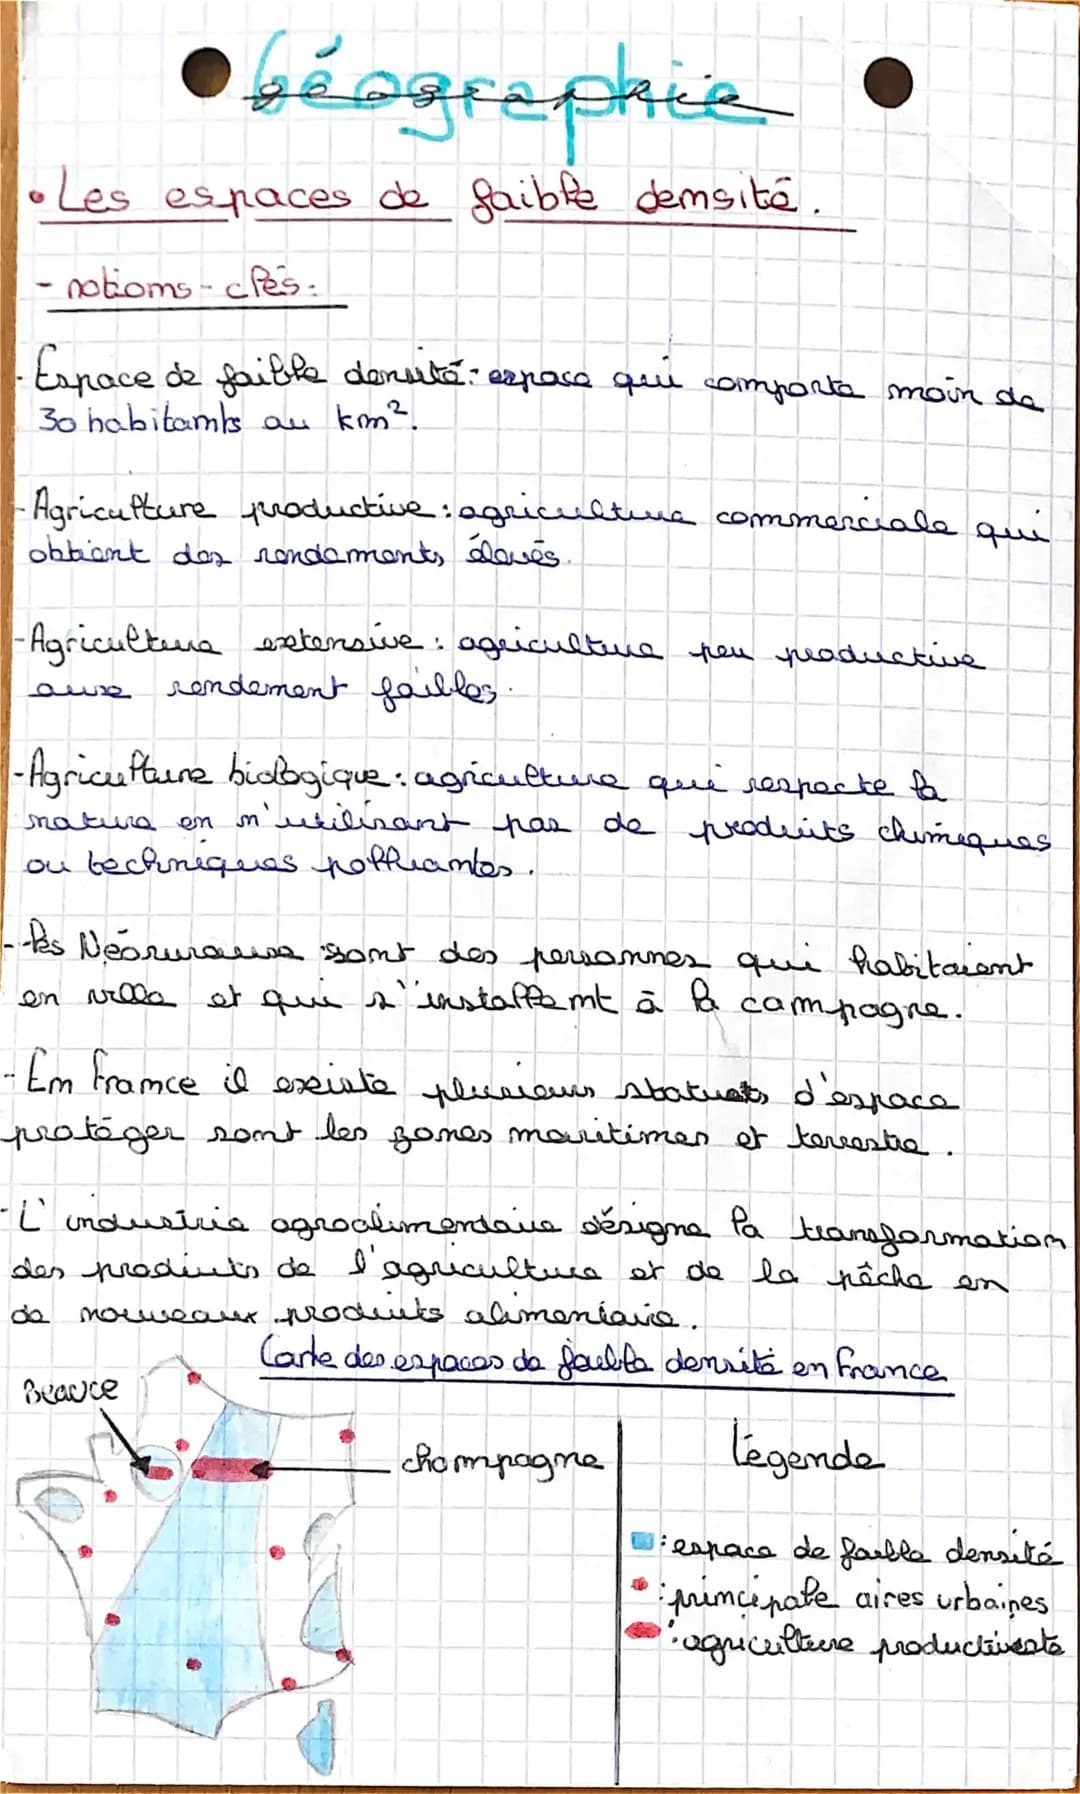 Géographie
• Les espaces de faible densité.
- notions-clés :
- Espace de faible densité : espace qui comporte moin de
30 habitants au km².
- Agriculture productive : agriculture commerciale qui
obtient des rendements élevés.
- Agriculture extensive : agriculture peu productive
aux rendement faibles.
- Agriculture biologique : agriculture qui respecte la
nature en n'utilisant pas de produits chimiques
ou techniques polluantes.
- les Néoruraux sont des personnes qui habitaient
en ville et qui s'installent à la campagne.
- En France il existe plusieurs statuts d'espace
protéger sont les zones maritimes et terrestre.
- L'industrie agroalimentaire désigne la transformation
des produits de l'agriculture et de la pêche en
de nouveaux produits alimentaire.
Carte des espaces de faible densité en France
Beauce
champagne
Légende
: espace de faible densité
: principale aires urbaines
: agriculture productiviste